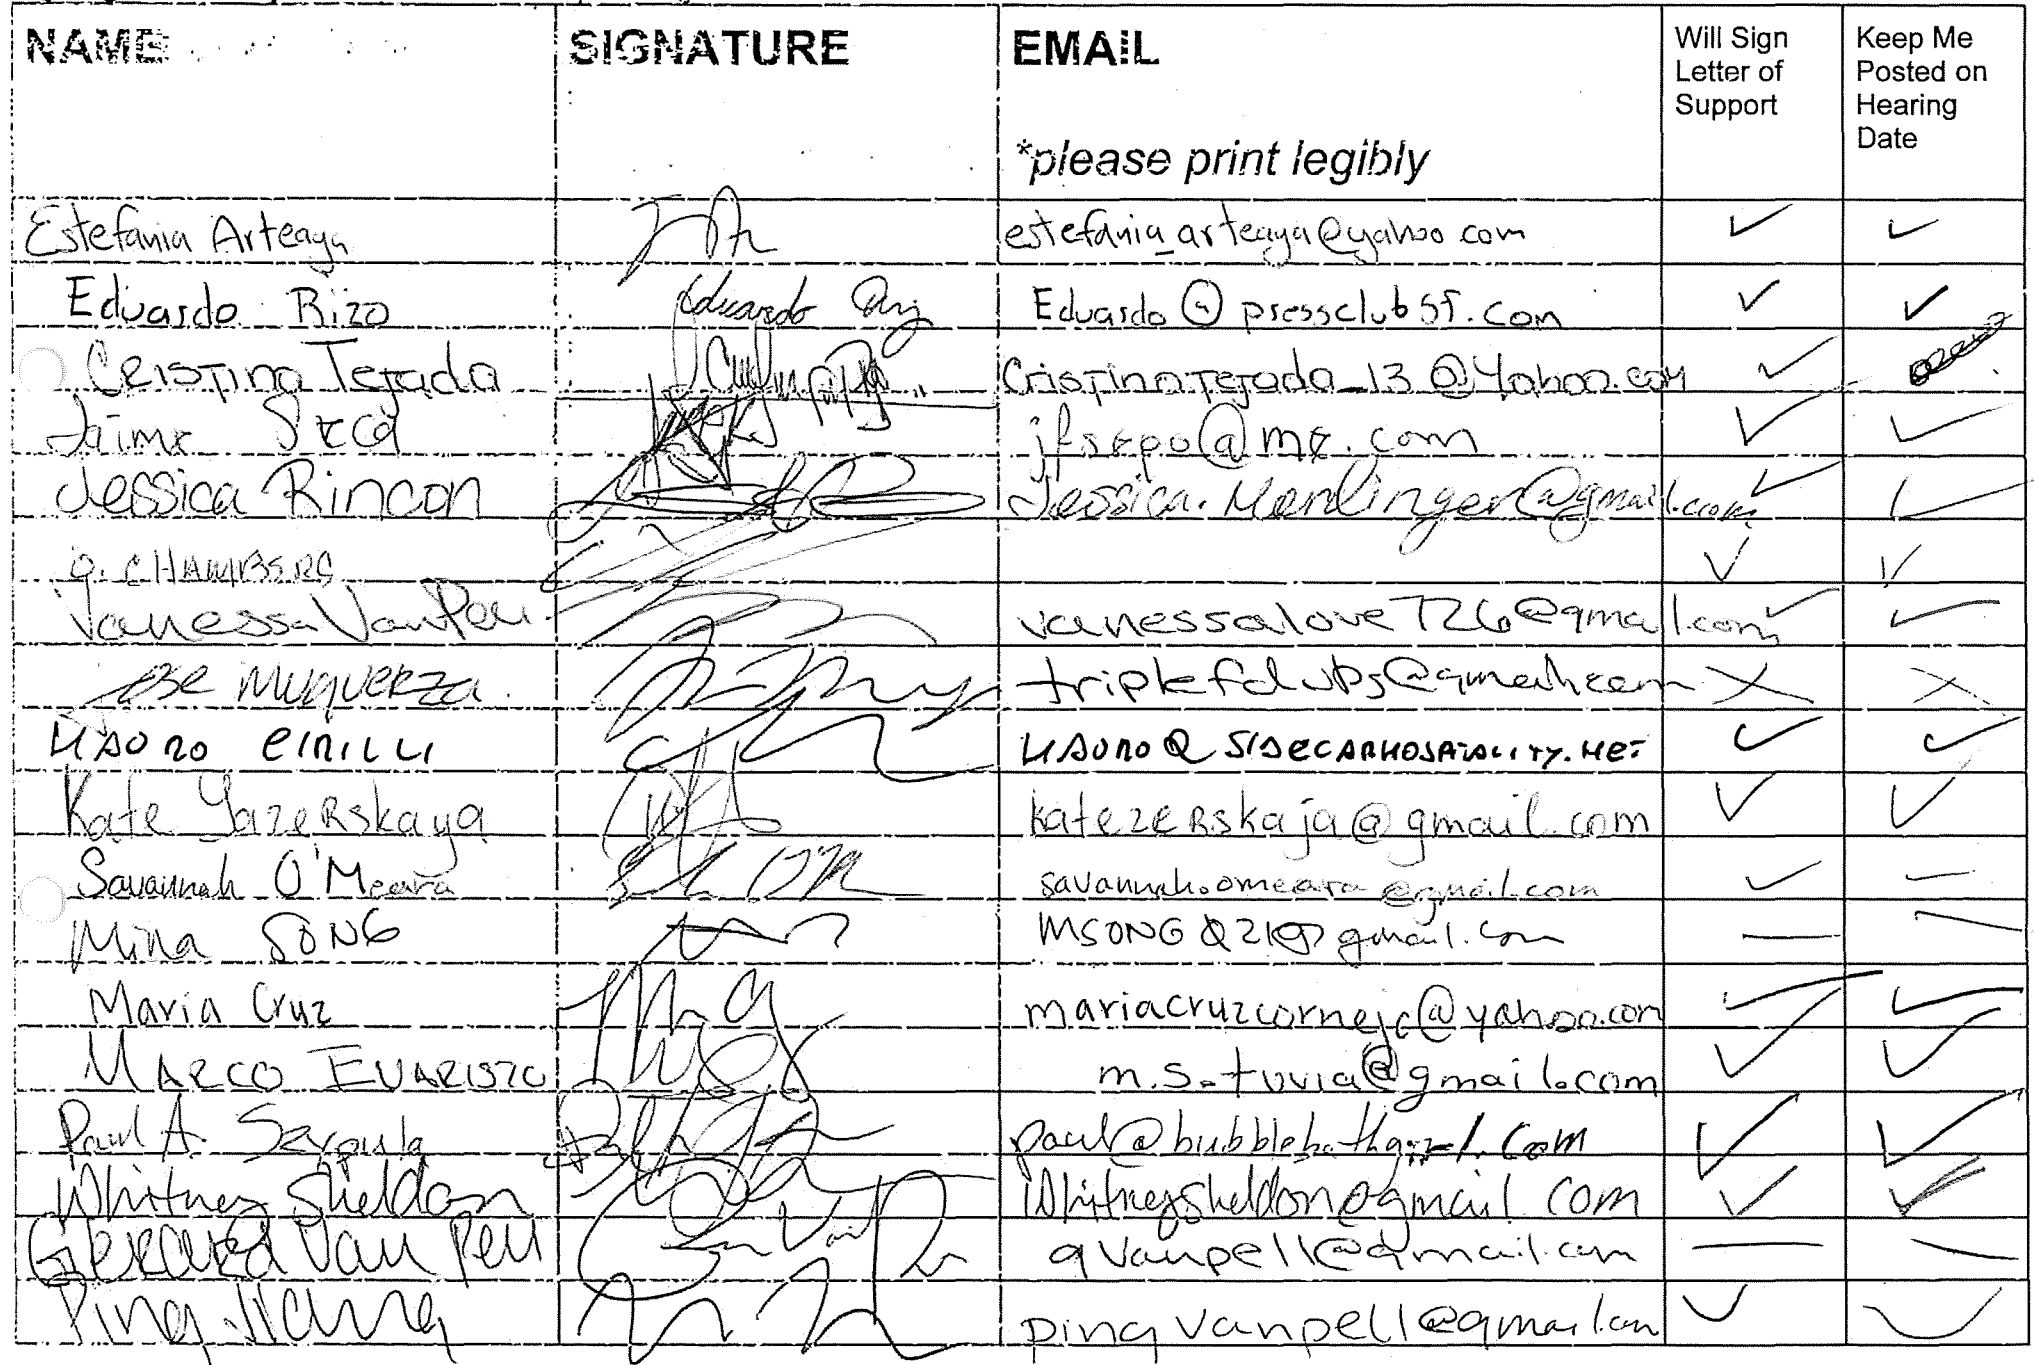 NAME SIGNATURE EMAIL Will Sign Letter of Support Keep Me Posted on Hearing Date
*please print legibly
Estefania Arteaga estefania_arteaga@yahoo.com ✓ ✓
Eduardo Rizo Eduardo @ pressclubsf.com ✓ ✓
Cristina Tejada Cristinatejada_13@Yahoo.com ✓
Jaime jfsepo@me.com ✓ ✓
Jessica Rincon Jessica.Menlinger@gmail.com ✓ ✓
CHAMBERS ✓ ✓
Vanessa VanPell vanessalove726@gmail.com ✓ ✓
Jose Muguerza triplefclubs@gmail.com X X
MAURO CIRILLI MAURO@SIDECARHOSPITALITY.NET ✓ ✓
Kate Yazerskaya katezerskaja@gmail.com ✓ ✓
Savannah O'Meara savannah.omeara@gmail.com ✓ –
Mina SONG gmail.com — —
Maria Cruz mariacruzcornejo@yahoo.com ✓ ✓
MARCO EVARISTO m.s.tuvia@gmail.com ✓ ✓
Paul A. Serpula ✓ ✓
Whitney Sheldon Whitneysheldon@gmail com ✓ ✓
Gerard Van Pell gvanpell@gmail.com — —
Ping Jiang pingvanpell@gmail.com ✓ ✓